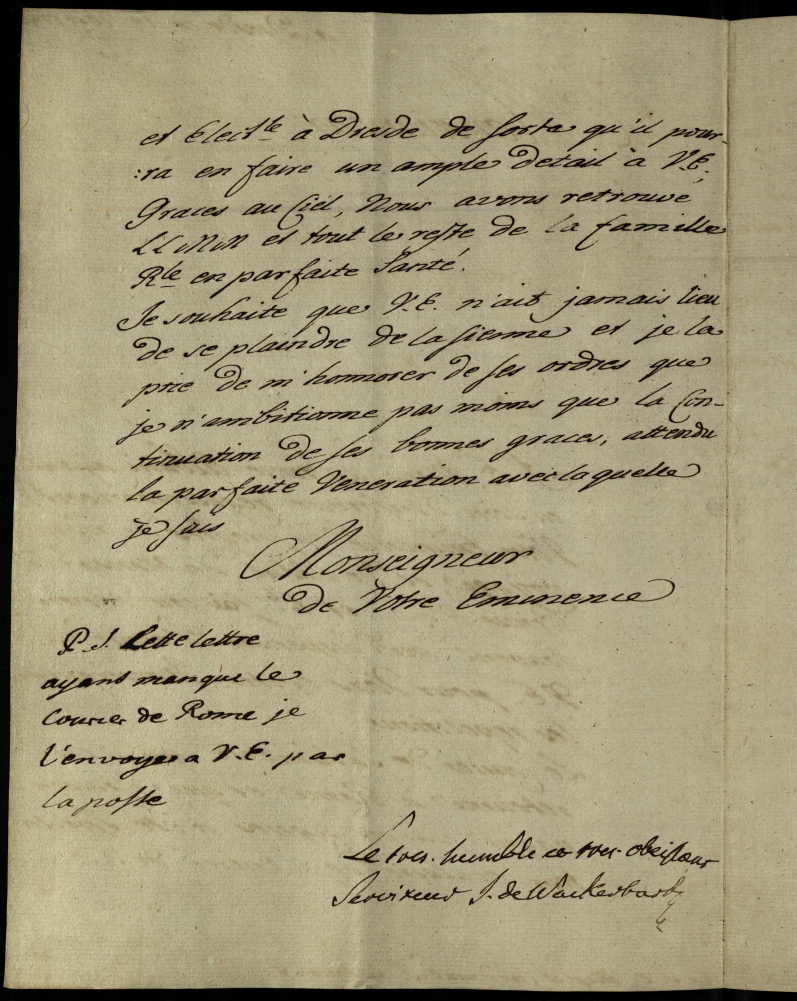 et Elect.le à Dresde de sorte qu'il pour-
:ra en faire un ample detail à V.E.;
Graces au Ciel, Nous avons retrouvé
LL MM et tout le reste de la famille
Rle en parfaite Santé.
Je souhaite que V.E. n'ait jamais lieu
de se plaindre de la sienne et je la
prie de m'honnorer de ses ordres que
je n'ambitionne pas moins que la Con-
tinuation de ses bonnes graces, attendu
la parfaite Veneration avec laquelle
je suis
Monseigneur
de Votre Eminence
P.S. Cette lettre
ayant manqué le
Courier de Rome je
l'envoye a V.E. par
la poste
Le tres-humble et tres-obeissant
Serviteur J. de Wackerbarth